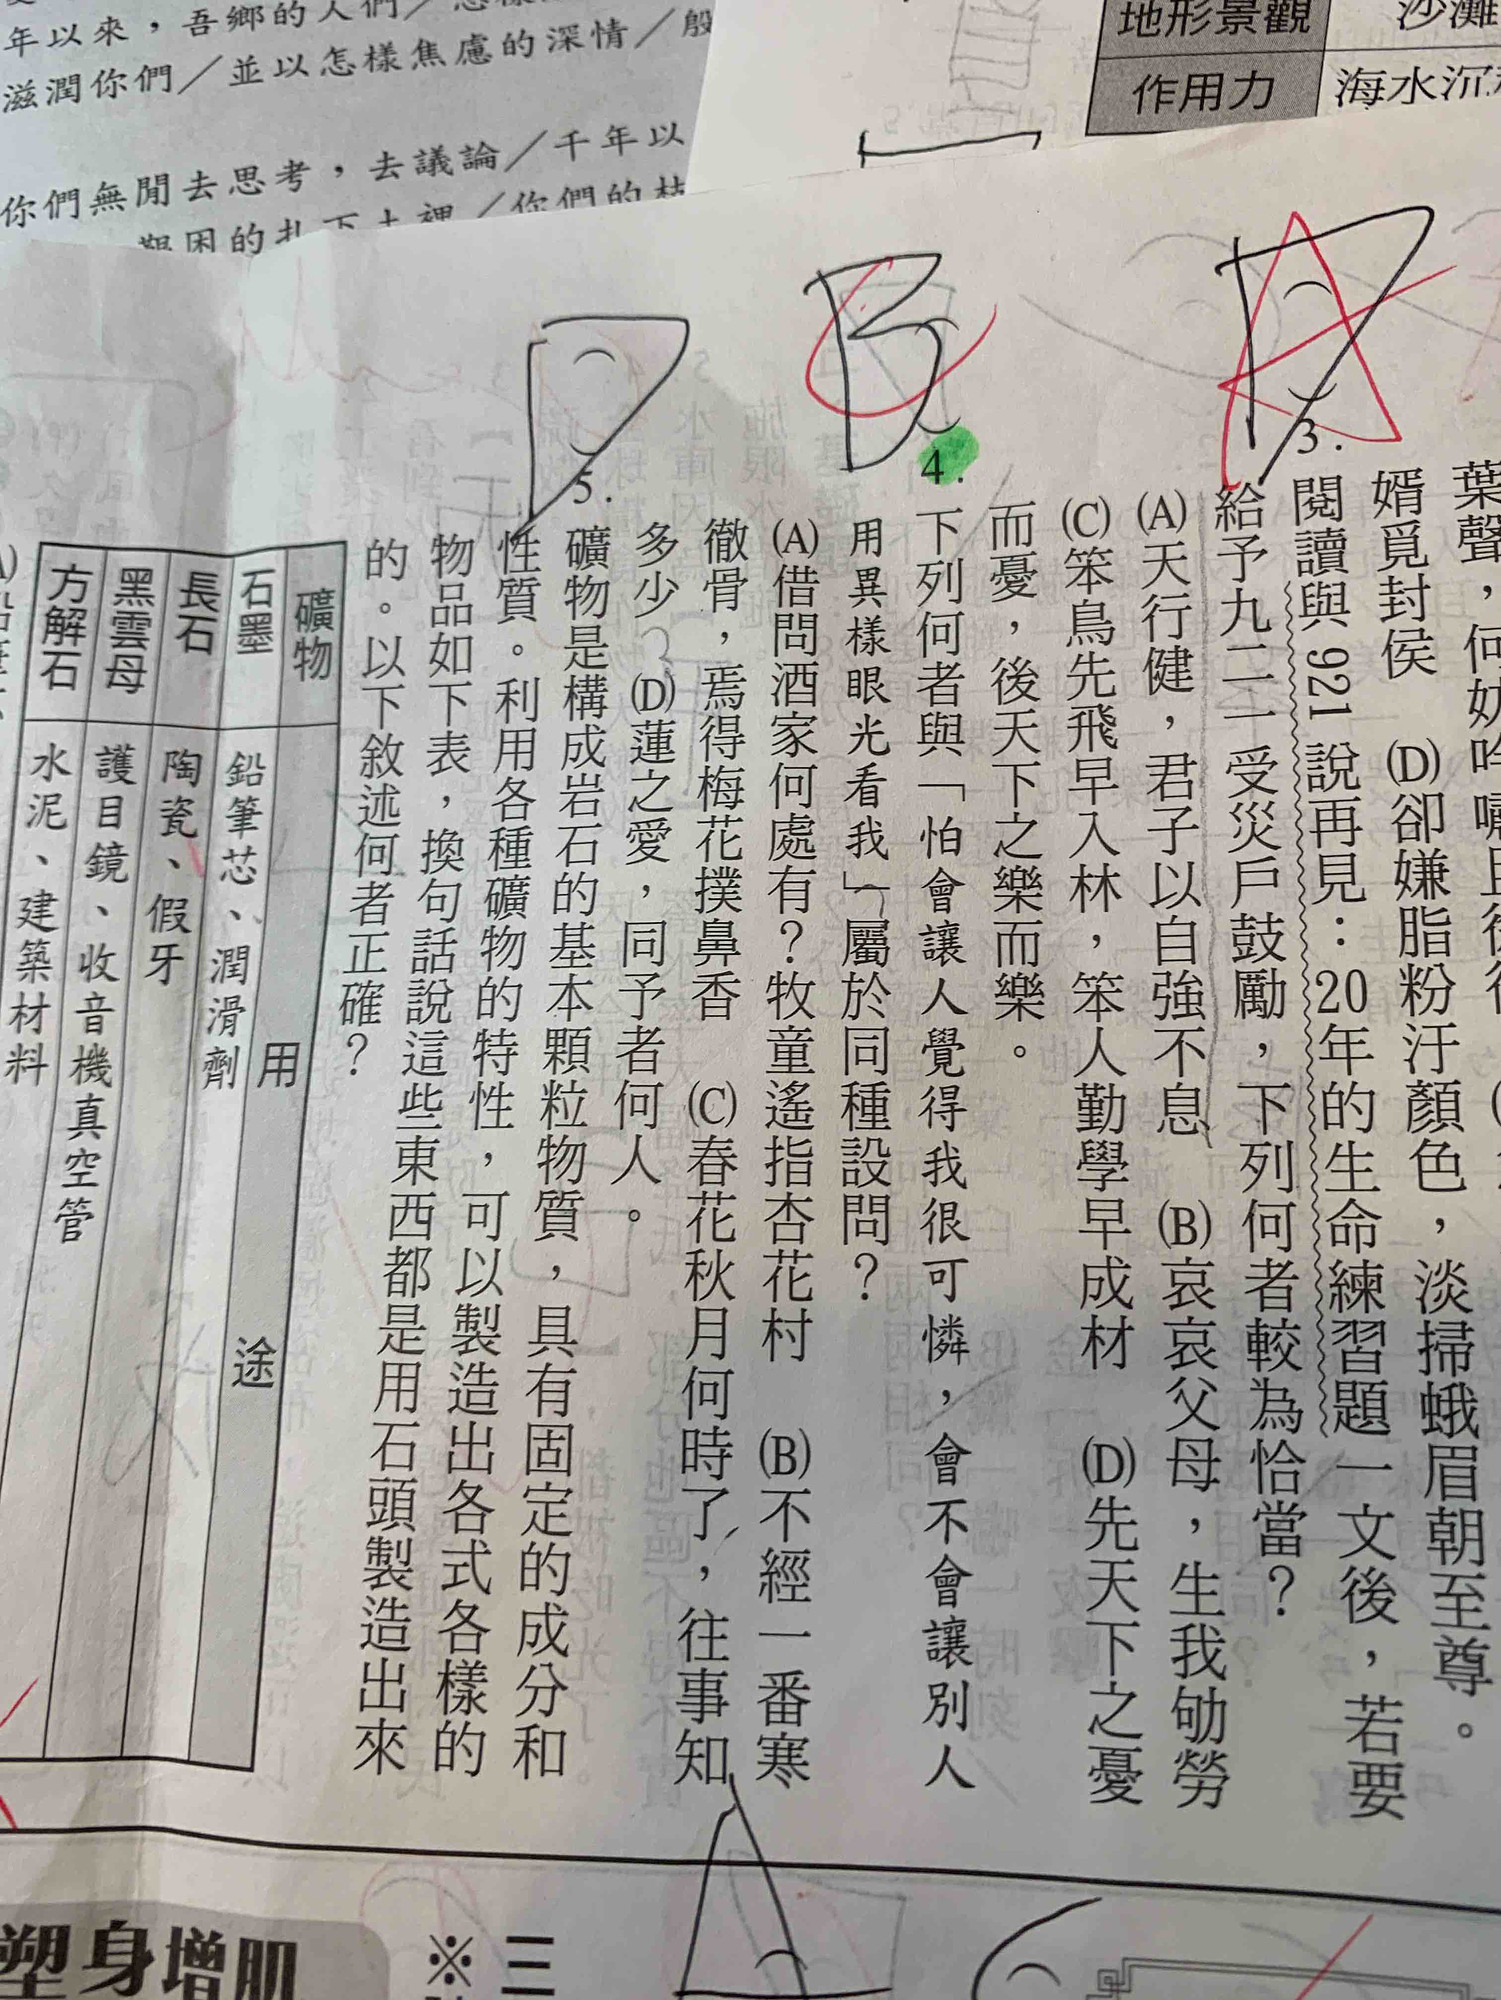 年以來，吾鄉的人們／
滋潤你們／並以怎樣焦慮的深情／殷
你們無閒去思考，去議論／千年以
艱困的扎下土裡／你們的枝
地形景觀 沙灘
作用力 海水沉
葉聲，何妨吟嘯且徐行
婿覓封侯 (D)卻嫌脂粉汙顏色，淡掃蛾眉朝至尊。
3.閱讀與921說再見：20年的生命練習題一文後，若要
給予九二一受災戶鼓勵，下列何者較為恰當？
(A)天行健，君子以自強不息 (B)哀哀父母，生我劬勞
(C)笨鳥先飛早入林，笨人勤學早成材 (D)先天下之憂
而憂，後天下之樂而樂。
B
4.下列何者與「怕會讓人覺得我很可憐，會不會讓別人
用異樣眼光看我」屬於同種設問？
(A)借問酒家何處有？牧童遙指杏花村 (B)不經一番寒
徹骨，焉得梅花撲鼻香 (C)春花秋月何時了，往事知
多少 (D)蓮之愛，同予者何人。
5.礦物是構成岩石的基本顆粒物質，具有固定的成分和
性質。利用各種礦物的特性，可以製造出各式各樣的
物品如下表，換句話說這些東西都是用石頭製造出來
的。以下敘述何者正確？
礦物 用途
石墨 鉛筆芯、潤滑劑
長石 陶瓷、假牙
黑雲母 護目鏡、收音機真空管
方解石 水泥、建築材料
塑身增肌
※三